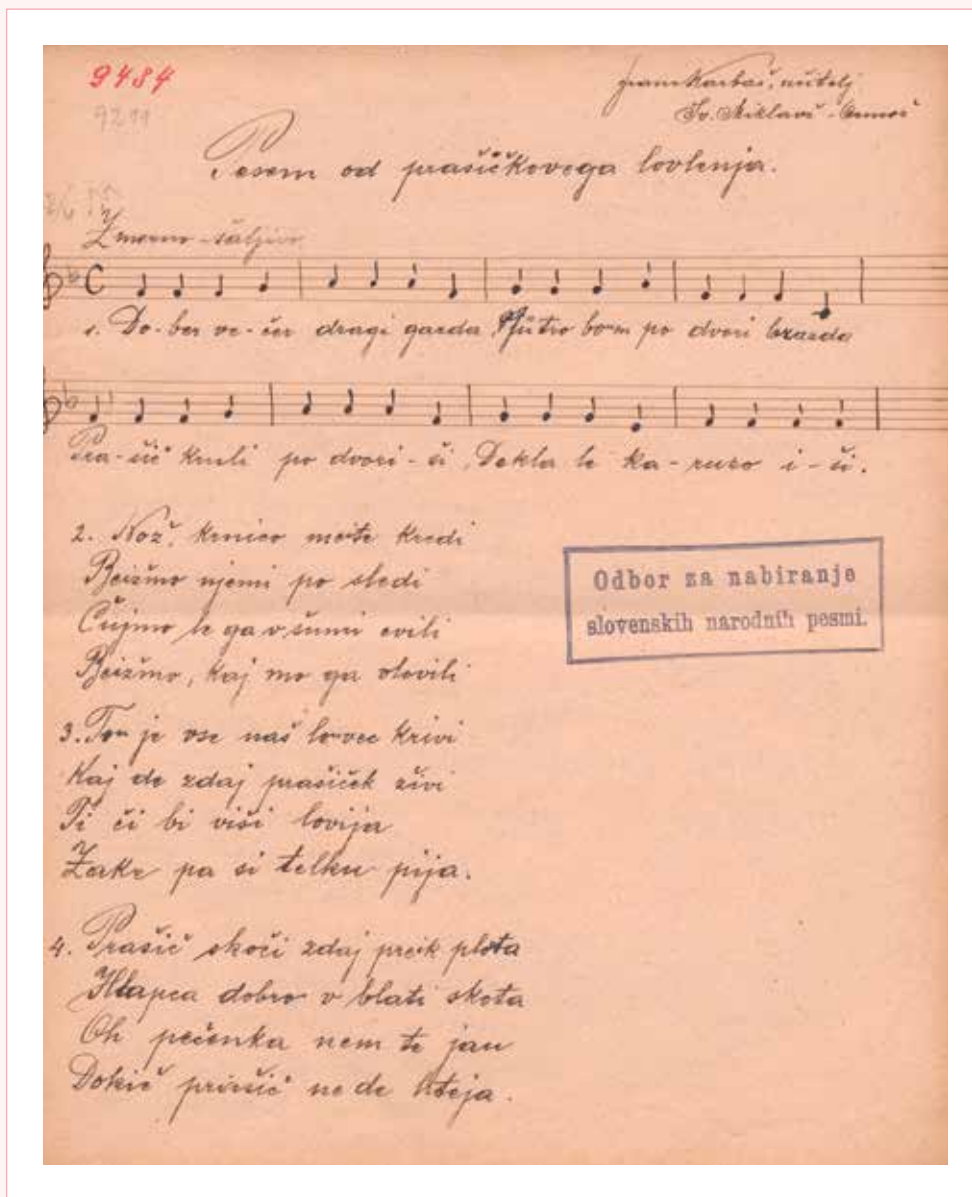 9484
9211
Franc Karbaš, učitelj
Sv. Miklavž - Ormož
Pesem od prašičkovega lovlenja.
Zmerno - šaljivo
1. Do-ber ve-čer dragi garda, Jütro bom po dvori brazda
Pra-sič kruli po dvori-ši, Dekla le ka-ruzo i-ši.
2. Nož, krnico mejte kredi
Beižmo njemi po sledi
Čüjmo le ga v šumi cvili
Beižmo, kaj mo ga vlovili
3. Tou je vse naš lovec krivi
Kaj de zdaj prašiček živi
Ti či bi viši lovija
Zake pa si telku pija.
4. Prasič skoči zdaj preik plota
Hlapca dobro v blati skota
Oh pečenka nem te jau
Dokič prasič ne de šteja.
Odbor za nabiranje
slovenskih narodnih pesmi.